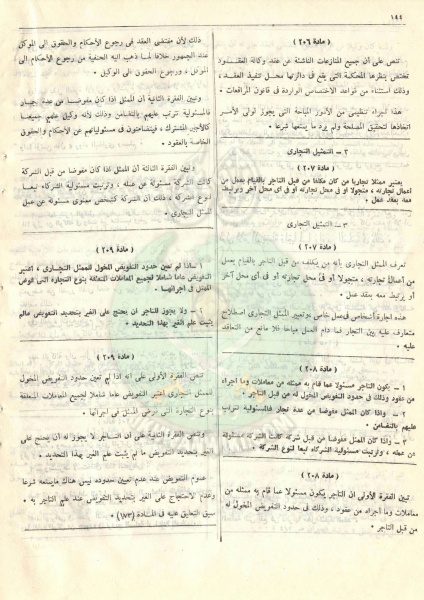 ١٤٤
( مادة ٢٠٦ )
تنص على أن جميع المنازعات الناشئة عن عقد وكالة العقود
تختص بنظرها المحكمة التى يقع فى دائرتها محل تنفيذ العقد ،
وذلك استثناء من قواعد الاختصاص الواردة فى قانون المرافعات .
هذا اجراء تنظيمى من الأمور المباحة التى يجوز لولى الأمر
اتخاذها لتحقيق المصلحة ولم يرد ما يمنعها شرعا .
٣ ــ التمثيل التجارى
( مادة ٢٠٧ )
يعتبر ممثلا تجاريا من كان مكلفا من قبل التاجر بالقيام بعمل من
أعمال تجارته ، متجولا أو فى محل تجارته أو فى أى محل آخر ويرتبط
معه بعقد عمل .
٣ ــ التمثيل التجارى
( مادة ٢٠٧ )
تعرف الممثل التجارى بأنه من يكلف من قبل التاجر بالقيام بعمل
من أعمال تجارته ، متجولا أو فى محل تجارته أو فى أى محل آخر
أو يرتبط معه بعقد عمل .
هذه اجارة أشخاص فى عمل خاص وتعبير الممثل التجارى اصطلاح
متعارف عليه بين التجار فما دام العمل مباحا فلا مانع من التعاقد
عليه .
( مادة ٢٠٨ )
١ ــ يكون التاجر مسئولا عما قام به ممثله من معاملات وما اجراه
من عقود وذلك فى حدود التفويض المخول له من قبل التاجر .
٢ ــ واذا كان الممثل مفوضا من عدة تجار فالمسئولية تترتب
عليهم بالتضامن .
٣ ــ واذا كان الممثل مفوضا من قبل شركة كانت الشركة مسئولة
عن عمله ، وترتبت مسئولية الشركاء تبعا لنوع الشركة .
( مادة ٢٠٨ )
تبين الفقرة الأولى أن التاجر يكون مسئولا عما قام به ممثله من
معاملات وما أجراه من عقود ، وذلك فى حدود التفويض المخول له
من قبل التاجر .
ذلك لأن مقتضى العقد فى رجوع الأحكام والحقوق الى الموكل
عند الجمهور خلافا لما ذهب اليه الحنفية من رجوع الأحكام الى
الموكل ، ورجوع الحقوق الى الوكيل .
وتبين الفقرة الثانية أن الممثل اذا كان مفوضا من عدة تجار
فالمسئولية تترتب عليهم بالتضامن وذلك لأنه وكيل عنهم جميعا
كالأجير المشترك ، فيتضامنون فى مسئولياتهم عن الأحكام والحقوق
الخاصة بالعقود .
وتبين الفقرة الثالثة أن الممثل اذا كان مفوضا من قبل الشركة
كانت الشركة مسئولة عن عمله ، وترتبت مسئولية الشركاء تبعا
لنوع الشركة ، ذلك أن الشركة كشخص معنوى مسئولة عن عمل
الممثل التجارى .
( مادة ٢٠٩ )
١ ــ اذا لم تعين حدود التفويض المخول للممثل التجارى ، اعتبر
التفويض عاما شاملا لجميع المعاملات المتعلقة بنوع التجارة التى فوض
الممثل فى اجرائها .
٢ ــ ولا يجوز للتاجر أن يحتج على الغير بتحديد التفويض مالم
يثبت علم الغير بهذا التحديد .
( مادة ٢٠٩ )
تنص الفقرة الأولى على أنه اذا لم تعين حدود التفويض المخول
للممثل التجارى اعتبر التفويض عاما شاملا لجميع المعاملات المتعلقة
بنوع التجارة التى فوض الممثل فى اجرائها .
وتنص الفقرة الثانية على أن التاجر لا يجوز له أن يحتج على
الغير بتحديد التفويض ما لم يثبت علم الغير بهذا التحديد .
عموم التفويض عند عدم تعيين حدوده ليس هناك مايمنعه شرعا
وعدم الاحتجاج على الغير بتحديد التفويض عند علم التاجر به .
سبق التعليق عليه فى المادة (١٧٣) .